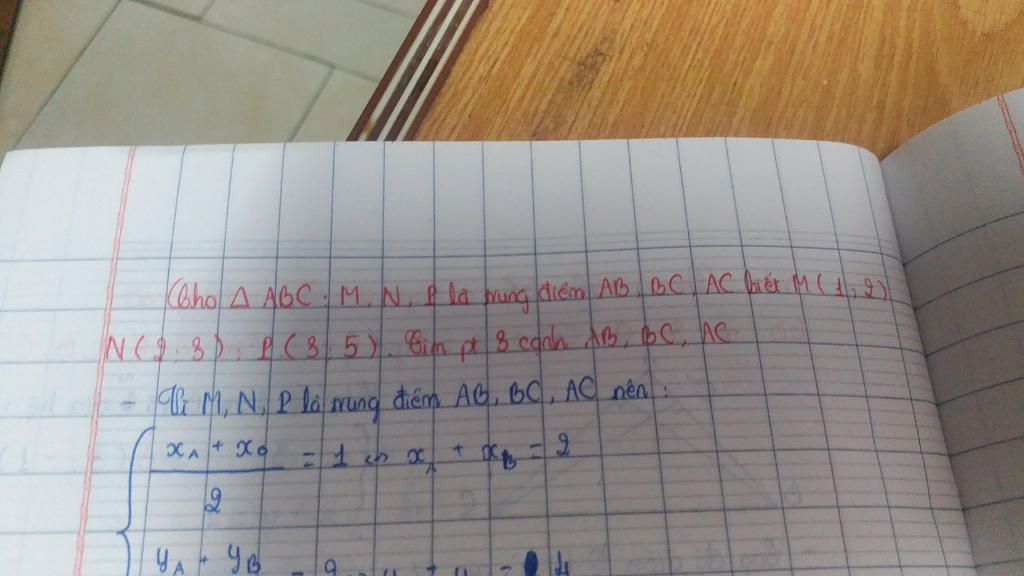 Cho Δ ABC. M, N, P là trung điểm AB, BC, AC biết M(1; 2)
N(2; 3); P(3; 5). Tìm pt 3 cạnh AB, BC, AC
- Vì M, N, P là trung điểm AB, BC, AC nên:
x_A + x_B / 2 = 1 <=> x_A + x_B = 2
y_A + y_B = 2 4